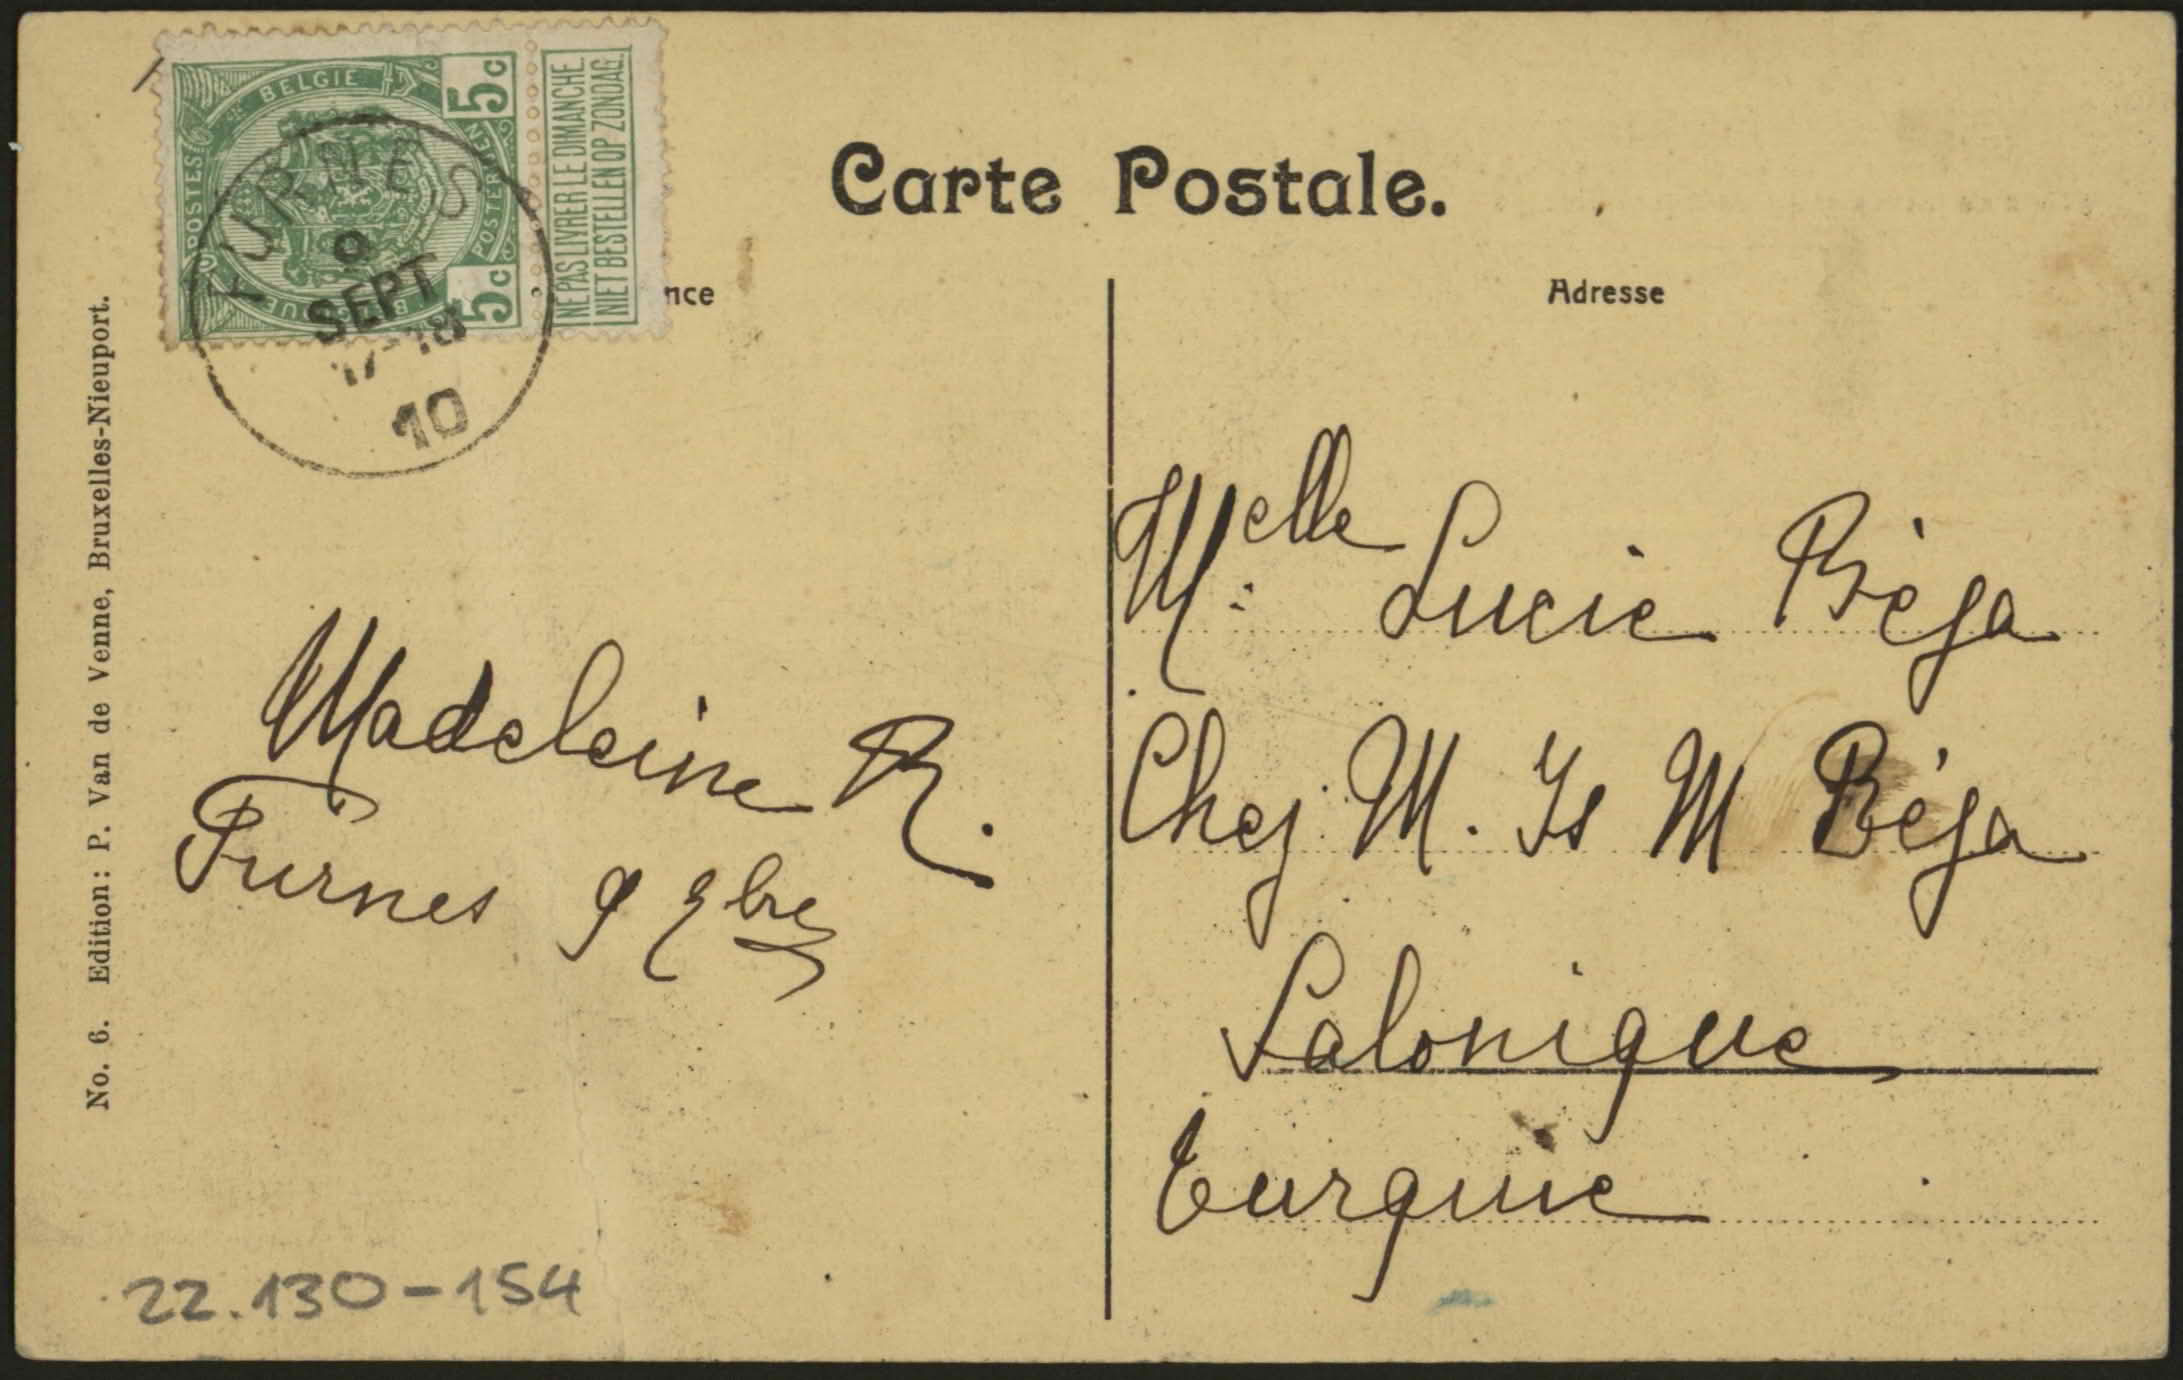 Carte Postale.
nce
Adresse
BELGIE
POSTES
POSTERIJEN
BELGIQUE
5c
5c
NE PAS LIVRER LE DIMANCHE.
NIET BESTELLEN OP ZONDAG.
FURNES
9
SEPT
17-18
10
No. 6. Edition: P. Van de Venne, Bruxelles-Nieuport.
Madeleine R.
Furnes 9 7bre
Melle Lucie Béja
Chez M. Is M Béja
Salonique
Turquie
22.130-154